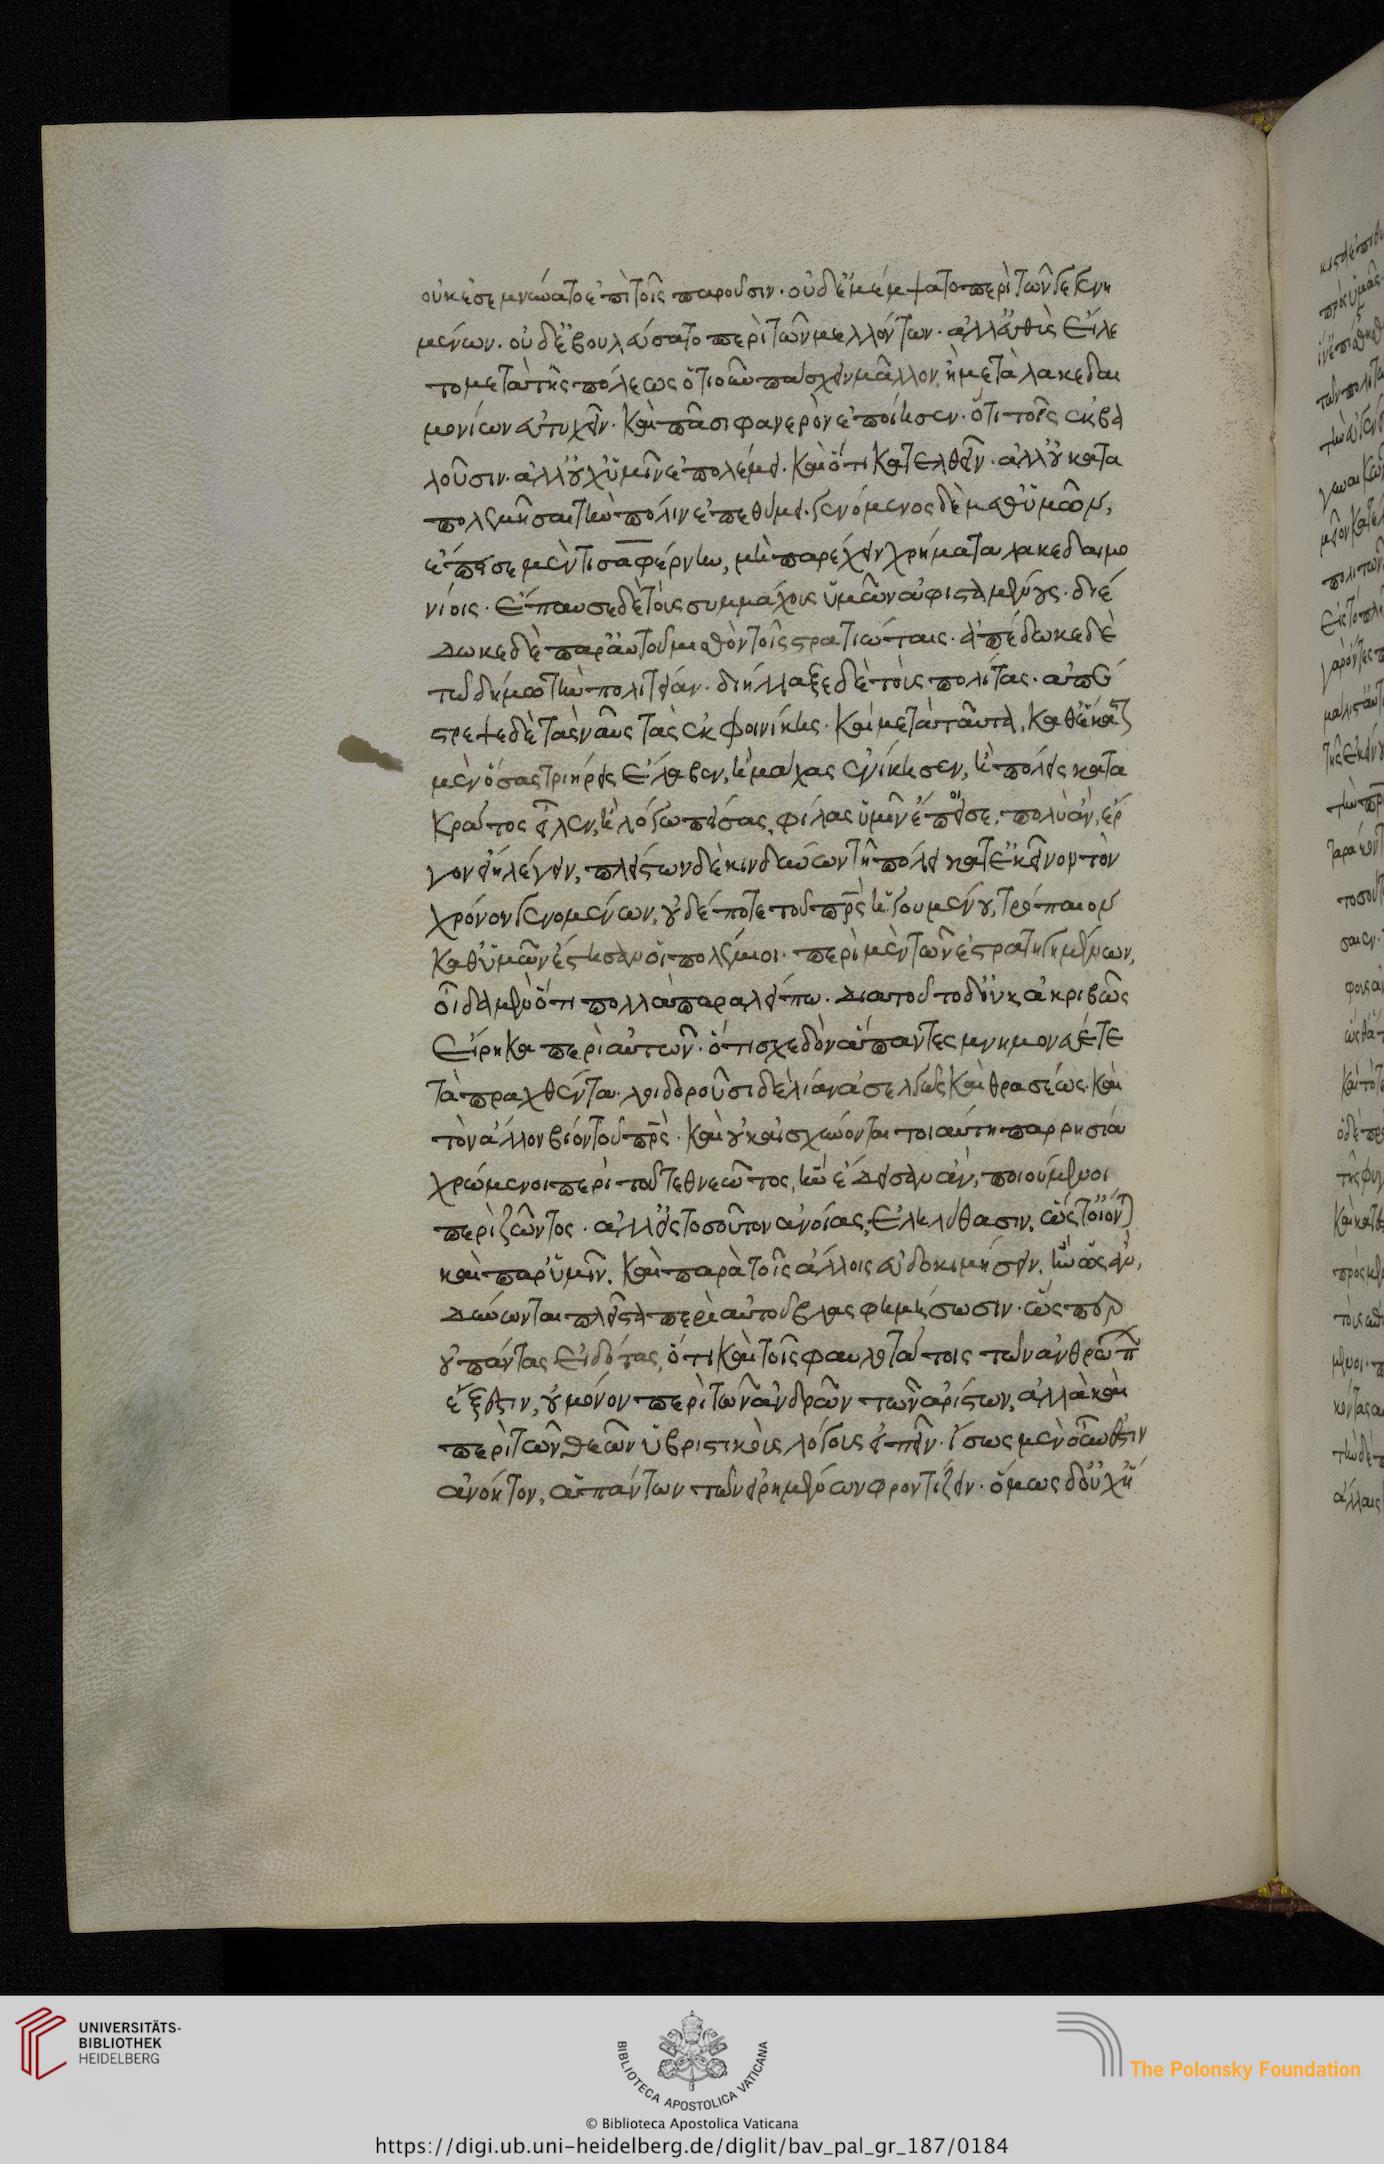 οὐκ ἐσεμνύνατο ἐπὶ τοῖς παροῦσιν· οὐδ' ἐμέμψατο περὶ τῶν γεγενη
μένων· οὐδ' ἐβουλεύσατο περὶ τῶν μελλόντων· ἀλλ' εὐθὺς εἵλε
το μετὰ τῆς πόλεως ὁτιοῦν πάσχειν μᾶλλον, ἢ μετὰ λακεδαι
μονίων εὐτυχεῖν· καὶ πᾶσι φανερὸν ἐποίησεν· ὅτι τοῖς ἐκβα
λοῦσιν· ἀλλ' οὐχ ὑμῖν ἐπολέμει· καὶ ὅτι κατελθεῖν· ἀλλ' οὐ κατα
πολεμῆσαι τὴν πόλιν ἐπεθύμει· γενόμενος δὲ μεθ' ὑμῶν,
ἔπεισε μὲν τισαφέρνην, μὴ παρέχειν χρήματα λακεδαιμο
νίοις· ἔπαυσε δὲ τοὺς συμμάχους ὑμῶν ἀφισταμένους· διέ
δωκε δὲ παρ' αὑτοῦ μισθὸν τοῖς στρατιώταις· ἀπέδωκε δὲ
τῷ δήμῳ τὴν πολιτείαν· διήλλαξε δὲ τοὺς πολίτας· ἀπέ
στρεψε δὲ τὰς ναῦς τὰς ἐκ φοινίκης· καὶ μετὰ ταῦτα, καθ' ἕκαστον
μὲν ὅσας τριήρεις ἔλαβεν, ἢ μάχας ἐνίκησεν, ἢ πόλεις κατὰ
κράτος εἷλεν, ἢ λόγῳ πείσας, φίλας ὑμῖν ἐποίησε, πολὺ ἂν, ἔρ
γον εἴη λέγειν, πλείστων δὲ κινδύνων τῇ πόλει κατ' ἐκεῖνον τὸν
χρόνον γενομένων, οὐδέποτε τοῦ πρς ἡγουμένου, τρόπαιον
καθ' ὑμῶν ἔστησαν οἱ πολέμιοι· περὶ μὲν τῶν ἐστρατηγημένων,
οἶδα μὲν ὅτι πολλὰ παραλείπω· διὰ τοῦτο δ' οὐκ ἀκριβῶς
εἴρηκα περὶ αὐτῶν· ὅτι σχεδὸν ἅπαντες μνημονεύετε
τὰ πραχθέντα· λοιδοροῦσι δὲ λίαν ἀσελγῶς καὶ θρασέως· καὶ
τὸν ἄλλον βίον τοῦ πρς· καὶ οὐκ αἰσχύνονται τοιαύτῃ παρρησίᾳ
χρώμενοι περὶ τοῦ τεθνεῶτος, ἣν ἔδεισαν ἂν, ποιούμενοι
περὶ ζῶντος· ἀλλ' εἰς τοσοῦτον ἀνοίας, ἐληλύθασιν, ὥστ' οἴονται
καὶ παρ' ὑμῖν, καὶ παρὰ τοῖς ἄλλοις εὐδοκιμήσειν, ἢν ὡς ἂν,
δύνωνται πλεῖστα περὶ αὐτοῦ βλασφημήσωσιν· ὥσπερ
οὐ πάντας εἰδότας, ὅτι καὶ τοῖς φαυλοτάτοις τῶν ἀνθρώπων
ἔξεστιν, οὐ μόνον περὶ τῶν ἀνδρῶν τῶν ἀρίστων, ἀλλὰ καὶ
περὶ τῶν θεῶν ὑβριστικοὺς λόγους εἰπεῖν· ἴσως μὲν οὖν ἐστιν
ἀνόητον, ἁπάντων τῶν εἰρημένων φροντίζειν· ὅμως δ' οὐχ ἥ
© Biblioteca Apostolica Vaticana
UNIVERSITÄTS-
BIBLIOTHEK
HEIDELBERG
BIBLIOTECA APOSTOLICA VATICANA
The Polonsky Foundation
https://digi.ub.uni-heidelberg.de/diglit/bav_pal_gr_187/0184